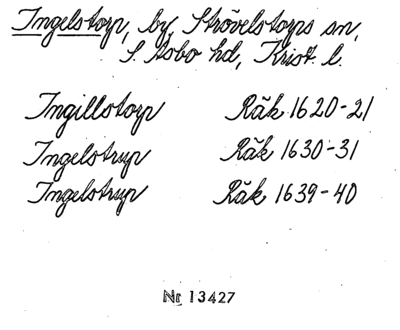 Ingelstorp, by, Strövelstorps sn,
S. Åsbo hd, Krist. l.
Ingillstorp Räk 1620-21
Ingelstrup Räk 1630-31
Ingelstrup Räk 1639-40
Nr 13427